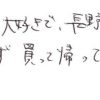 大好きで、長野
ず買って帰って